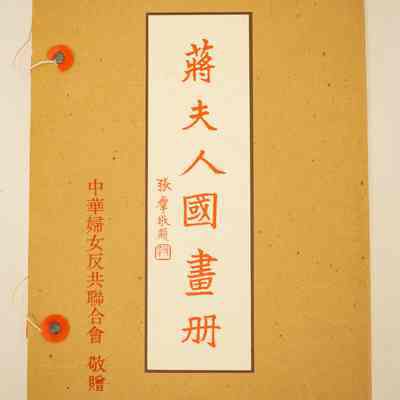 蔣夫人國畫册
張羣敬題
中華婦女反共聯合會 敬贈